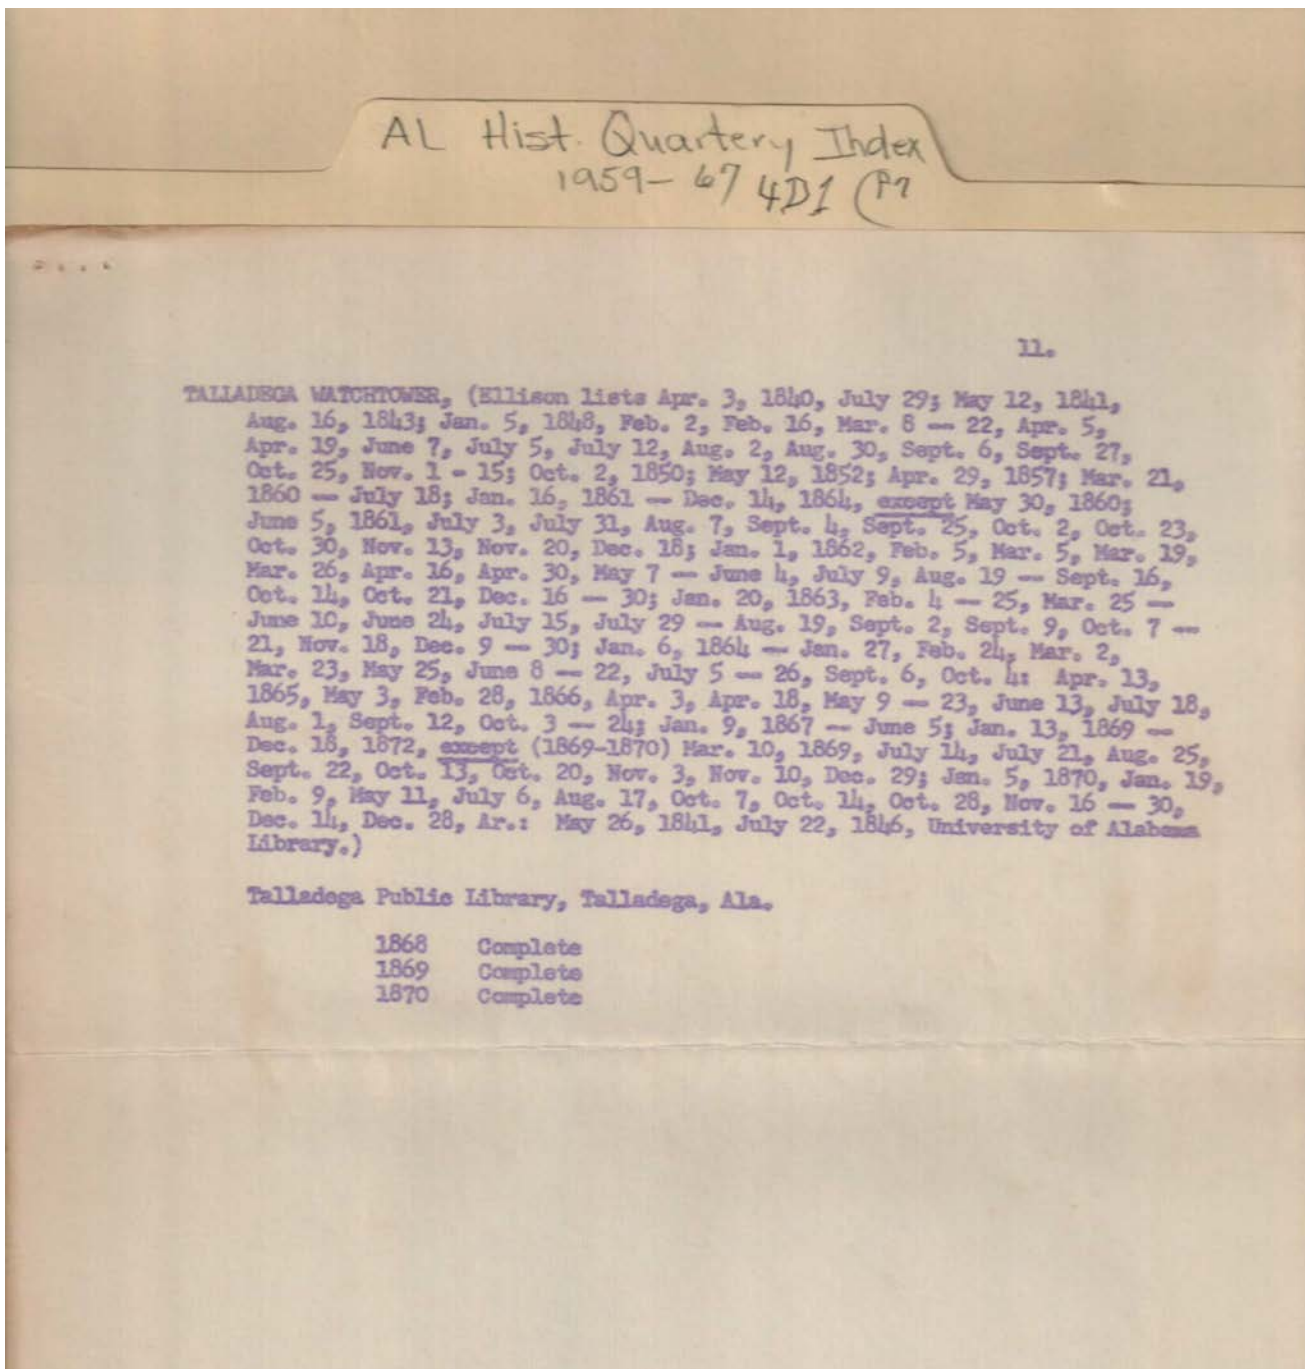 AL Hist. Quartery Index
1959-67 4D1 (P7
11.
TALLADEGA WATCHTOWER, (Ellison lists Apr. 3, 1840, July 29; May 12, 1841,
Aug. 16, 1843; Jan. 5, 1848, Feb. 2, Feb. 16, Mar. 8 -- 22, Apr. 5,
Apr. 19, June 7, July 5, July 12, Aug. 2, Aug. 30, Sept. 6, Sept. 27,
Oct. 25, Nov. 1 - 15; Oct. 2, 1850; May 12, 1852; Apr. 29, 1857; Mar. 21,
1860 -- July 18; Jan. 16, 1861 -- Dec. 14, 1864, except May 30, 1860;
June 5, 1861, July 3, July 31, Aug. 7, Sept. 4, Sept. 25, Oct. 2, Oct. 23,
Oct. 30, Nov. 13, Nov. 20, Dec. 18; Jan. 1, 1862, Feb. 5, Mar. 5, Mar. 19,
Mar. 26, Apr. 16, Apr. 30, May 7 -- June 4, July 9, Aug. 19 -- Sept. 16,
Oct. 14, Oct. 21, Dec. 16 -- 30; Jan. 20, 1863, Feb. 4 -- 25, Mar. 25 --
June 10, June 24, July 15, July 29 -- Aug. 19, Sept. 2, Sept. 9, Oct. 7 --
21, Nov. 18, Dec. 9 -- 30; Jan. 6, 1864 -- Jan. 27, Feb. 24, Mar. 2,
Mar. 23, May 25, June 8 -- 22, July 5 -- 26, Sept. 6, Oct. 4: Apr. 13,
1865, May 3, Feb. 28, 1866, Apr. 3, Apr. 18, May 9 -- 23, June 13, July 18,
Aug. 1, Sept. 12, Oct. 3 -- 24; Jan. 9, 1867 -- June 5; Jan. 13, 1869 --
Dec. 18, 1872, except (1869-1870) Mar. 10, 1869, July 14, July 21, Aug. 25,
Sept. 22, Oct. 13, Oct. 20, Nov. 3, Nov. 10, Dec. 29; Jan. 5, 1870, Jan. 19,
Feb. 9, May 11, July 6, Aug. 17, Oct. 7, Oct. 14, Oct. 28, Nov. 16 -- 30,
Dec. 14, Dec. 28, Ar.: May 26, 1841, July 22, 1846, University of Alabama
Library.)
Talladega Public Library, Talladega, Ala.
1868 Complete
1869 Complete
1870 Complete